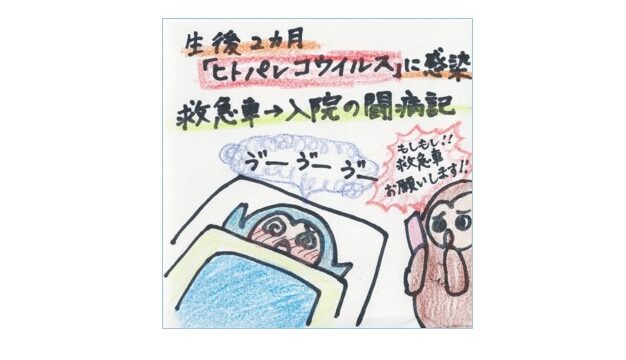 生後2カ月
「ヒトパレコウイルス」に感染
救急車→入院の闘病記
もしもし!!
救急車
お願いします!!
ゔーゔーゔー